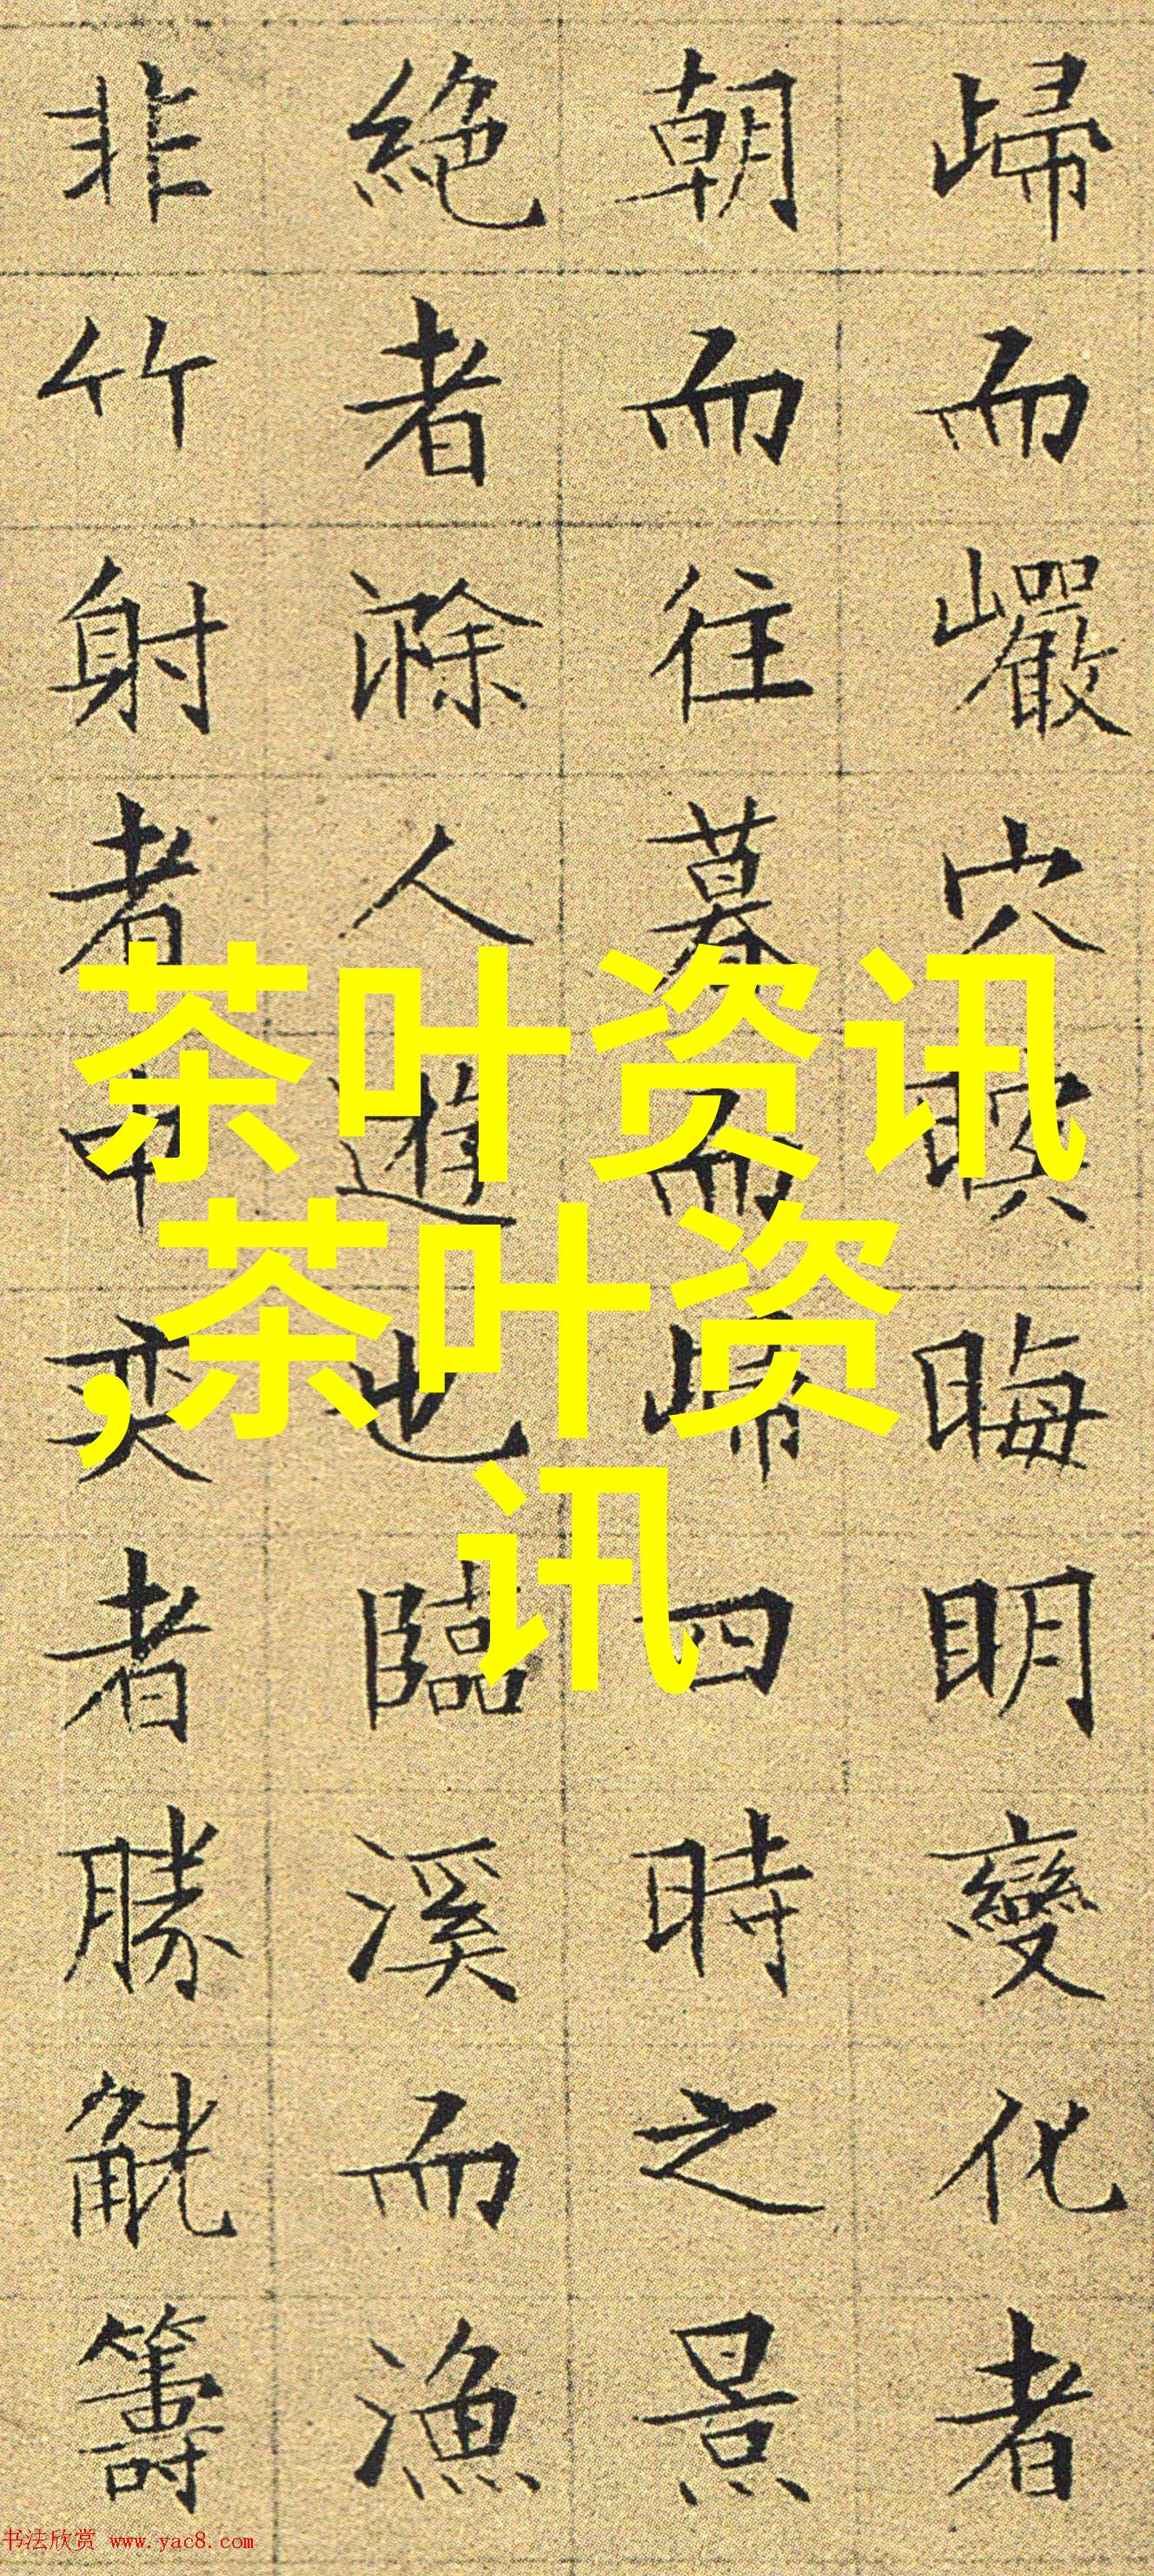 歸而巖穴暝晦明變化者
朝而往暮而歸四時之景
絕者滁人遊也臨溪而漁
非竹射者中奕者勝觥籌
茶叶资讯
,茶叶资
讯
书法欣赏 www.yac8.com